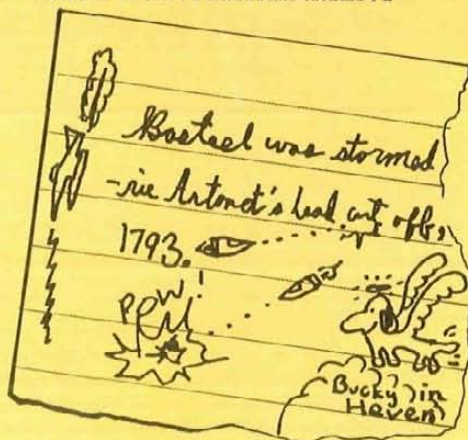 Basteel was stormed
-rie Antonet's head cut off,
1793.
POW!
Bucky in
Heven